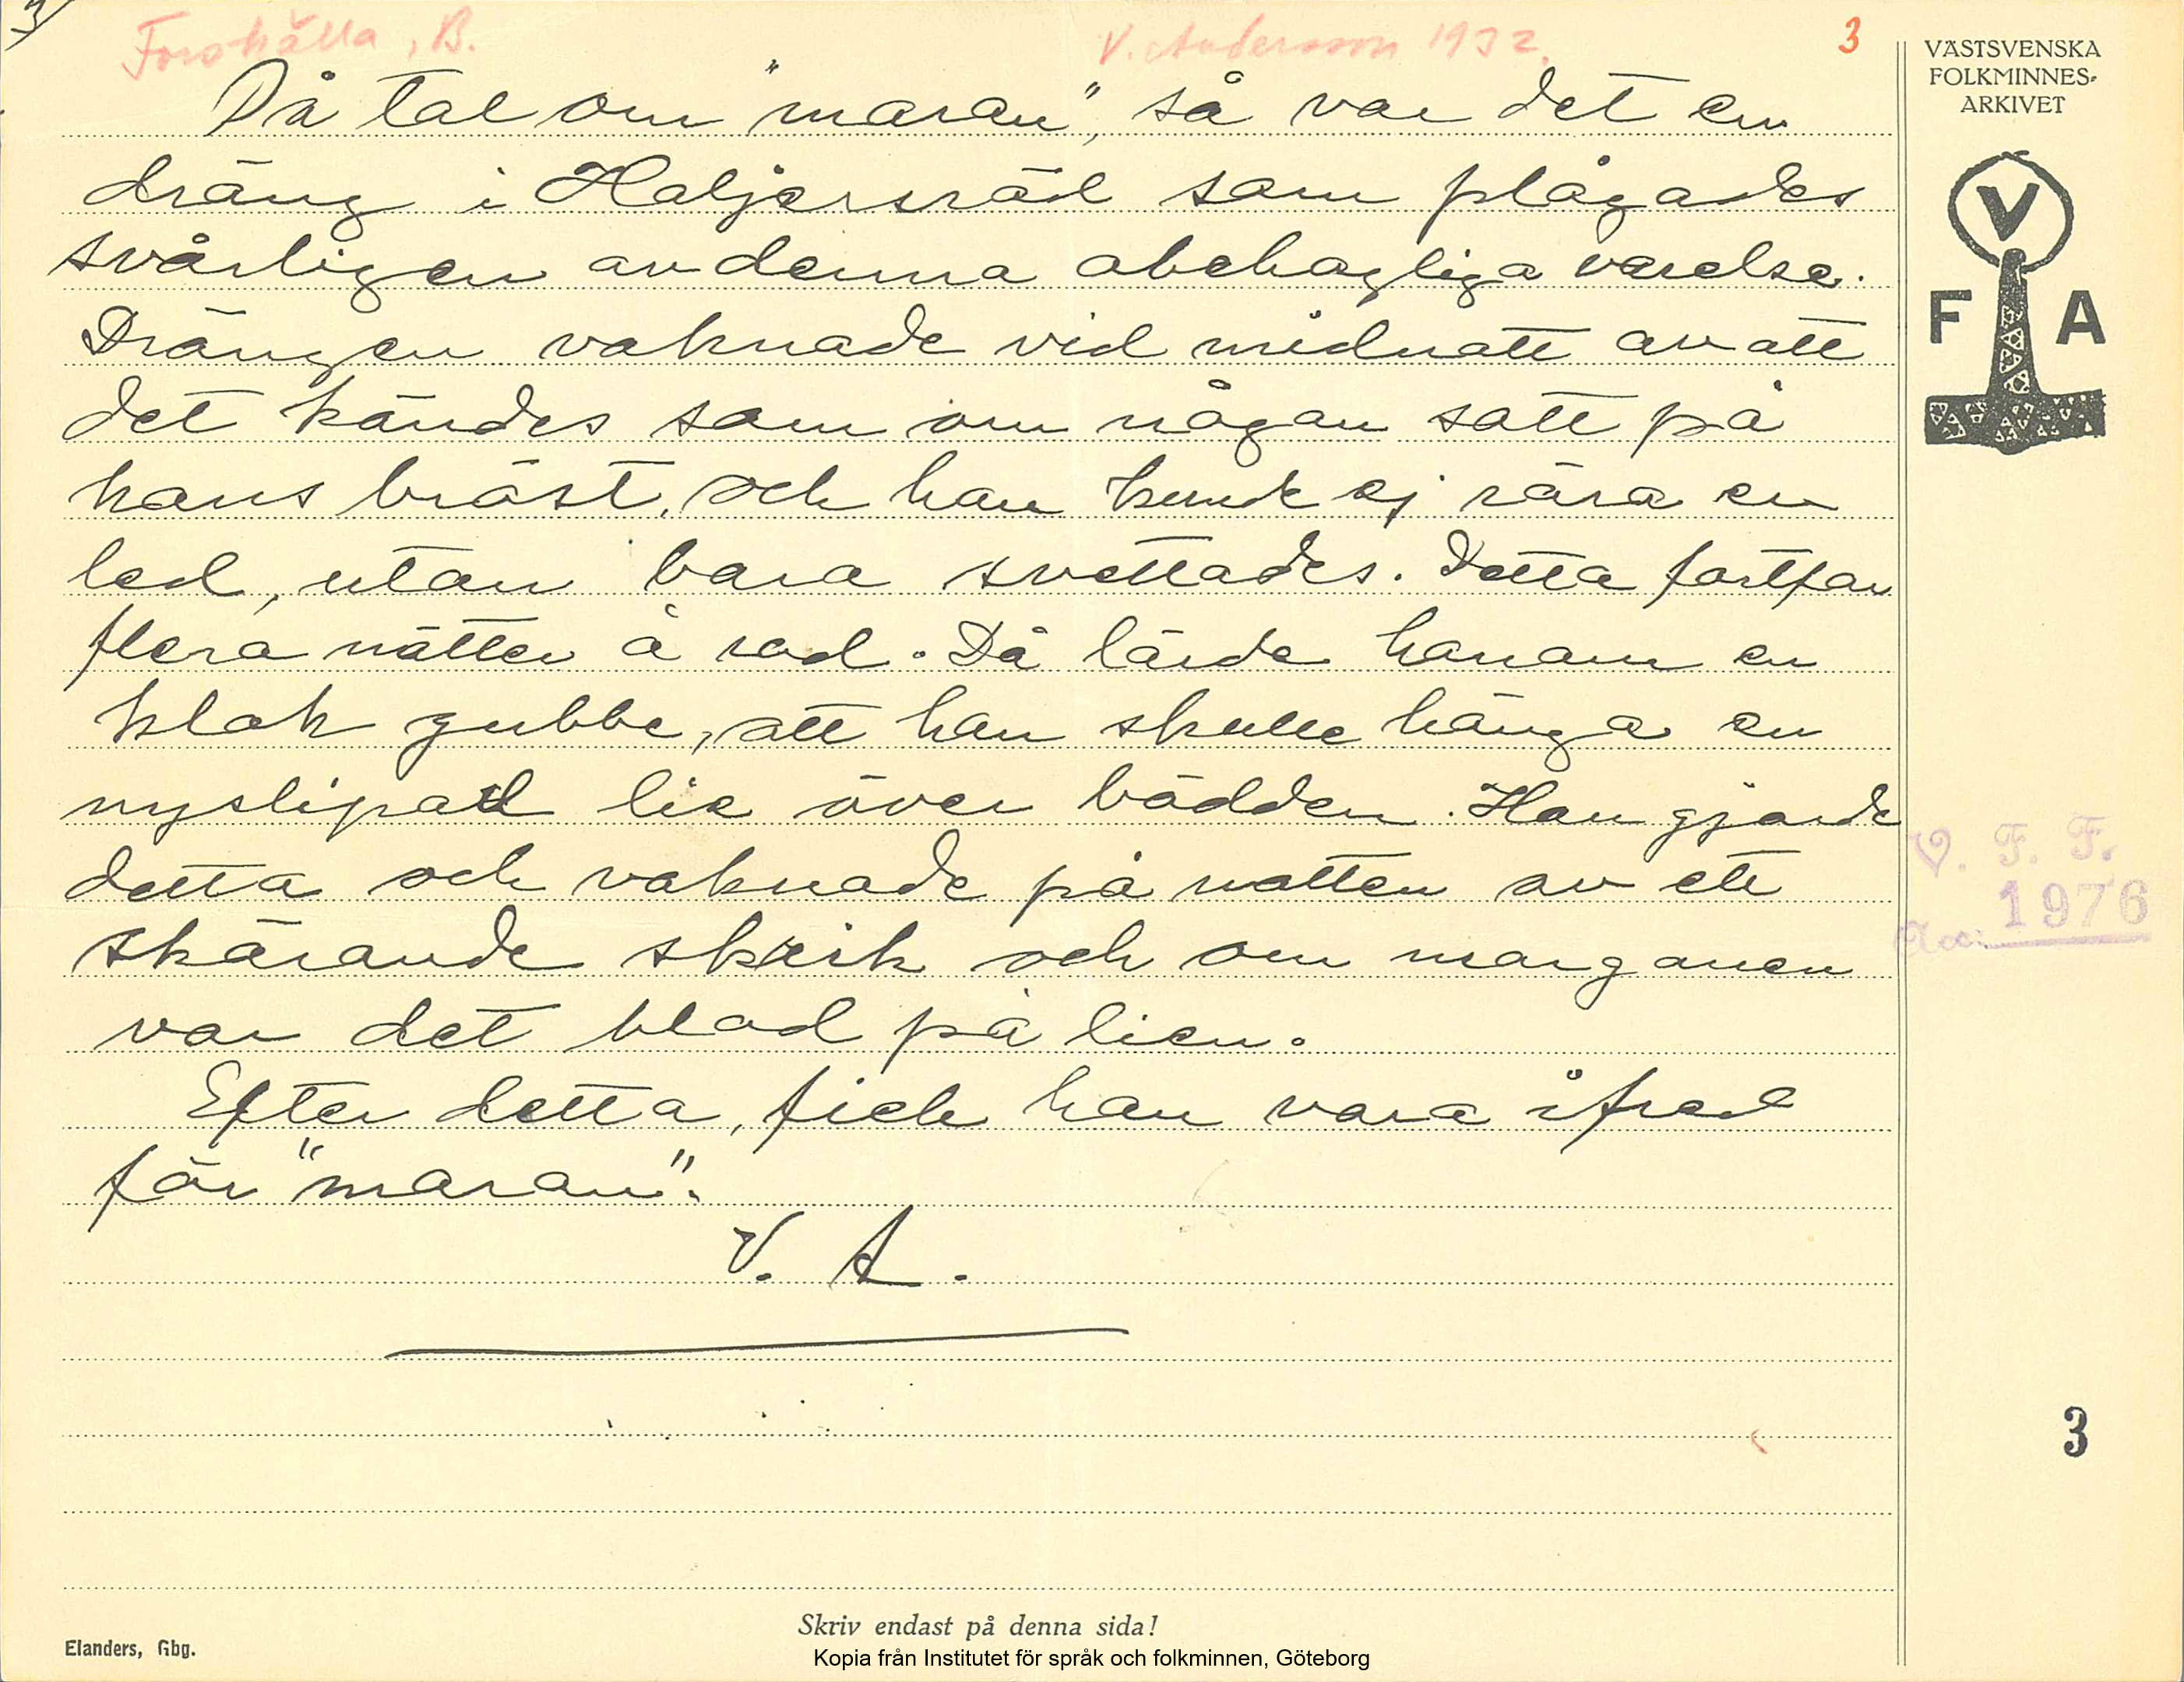 3
Forshälla, B.
V. Andersson 1932.
3
På tal om "maran", så var det en
dräng i Haljersröd som plågades
svårligen av denna obehagliga varelse.
Drängen vaknade vid midnatt av att
det kändes som om någon satt på
hans bröst, och han kunde ej röra en
led, utan bara svettades. Detta fortfor
flera nätter å rad. Då lärde honom en
klok gubbe, att han skulle hänga en
nyslipad lie över bädden. Han gjorde
detta och vaknade på natten av ett
skärande skrik och om morgonen
var det blod på lien.
Efter detta, fick han vara ifred
för "maran".
V. A.
VÄSTSVENSKA
FOLKMINNES-
ARKIVET
V
F A
V. F. F.
1976
Acc:
3
Skriv endast på denna sida!
Elanders, Gbg.
Kopia från Institutet för språk och folkminnen, Göteborg